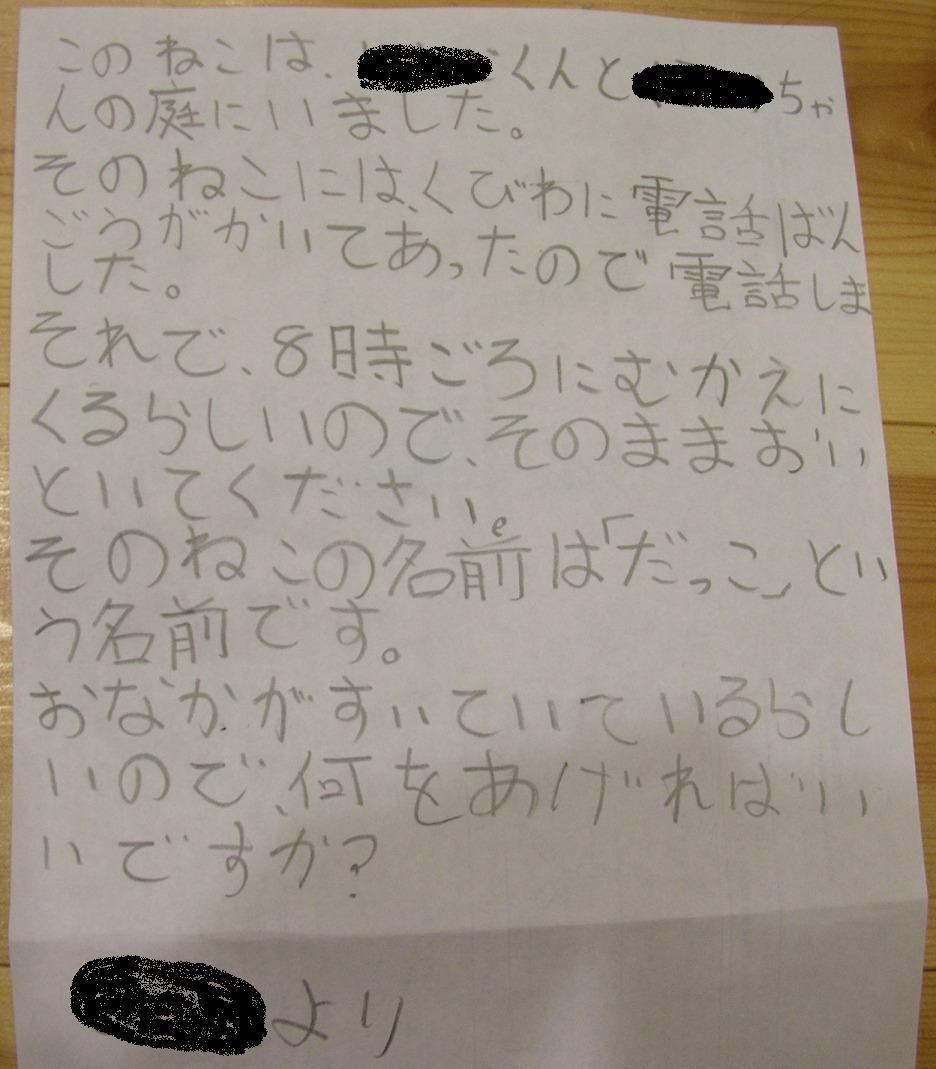 このねこは、くんとちゃ
んの庭にいました。
そのねこには、くびわに電話ばん
ごうがかいてあったので電話しま
した。
それで、8時ごろにむかえに
くるらしいので、そのままおい
といてください。
そのねこの名前は「だっこ」とい
う名前です。
おなかがすいていているらし
いので、何をあげればいい
いですか?
より